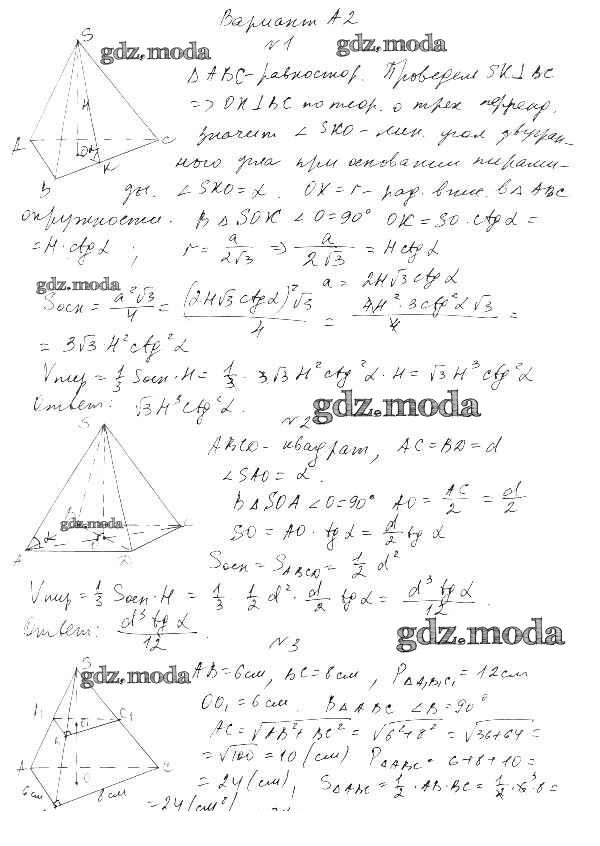 Вариант А2
gdz.moda
gdz.moda
N1
△ABC - равностор. Проведем SK⊥BC
=> OK⊥BC по теор. о трех перпенд.
Значит ∠SKO - лин. угол двугран-
ного угла при основании пирами-
ды. ∠SKO = α. OK = r - рад. впис. в △ABC
окружности. В △SOK ∠O = 90° OK = SO · ctgα =
= H · ctgα ; r = a/2√3 => a/2√3 = H ctgα
gdz.moda
a = 2H√3 ctgα
Sосн = a²√3/4 = (2H√3 ctgα)²√3/4 = 4H² · 3ctg²α√3/4 =
= 3√3 H² ctg²α
Vпир = 1/3 Sосн · H = 1/3 · 3√3 H² ctg²α · H = √3 H³ ctg²α
Ответ: √3 H³ ctg²α.
gdz.moda
N2
ABCD - квадрат, AC = BD = d
∠SAO = α.
В △SOA ∠O = 90° AO = AC/2 = d/2
gdz.moda
SO = AO · tgα = d/2 tgα
Sосн = SABCD = 1/2 d²
Vпир = 1/3 Sосн · H = 1/3 · 1/2 d² · d/2 tgα = d³ tgα/12.
Ответ: d³ tgα/12.
gdz.moda
N3
gdz.moda
AB = 6 см, BC = 8 см, P△A₁B₁C₁ = 12 см
OO₁ = 6 см. В △ABC ∠B = 90°
AC = √AB² + BC² = √6² + 8² = √36 + 64 =
= √100 = 10 (см) P△ABC = 6 + 8 + 10 =
= 24 (см), S△ABC = 1/2 · AB · BC = 1/2 · 6 · 8 =
= 24 (см²)
S
H
A
O
K
C
B
S
A
α
S
A₁
C₁
O₁
A
O
C
6 см
8 см